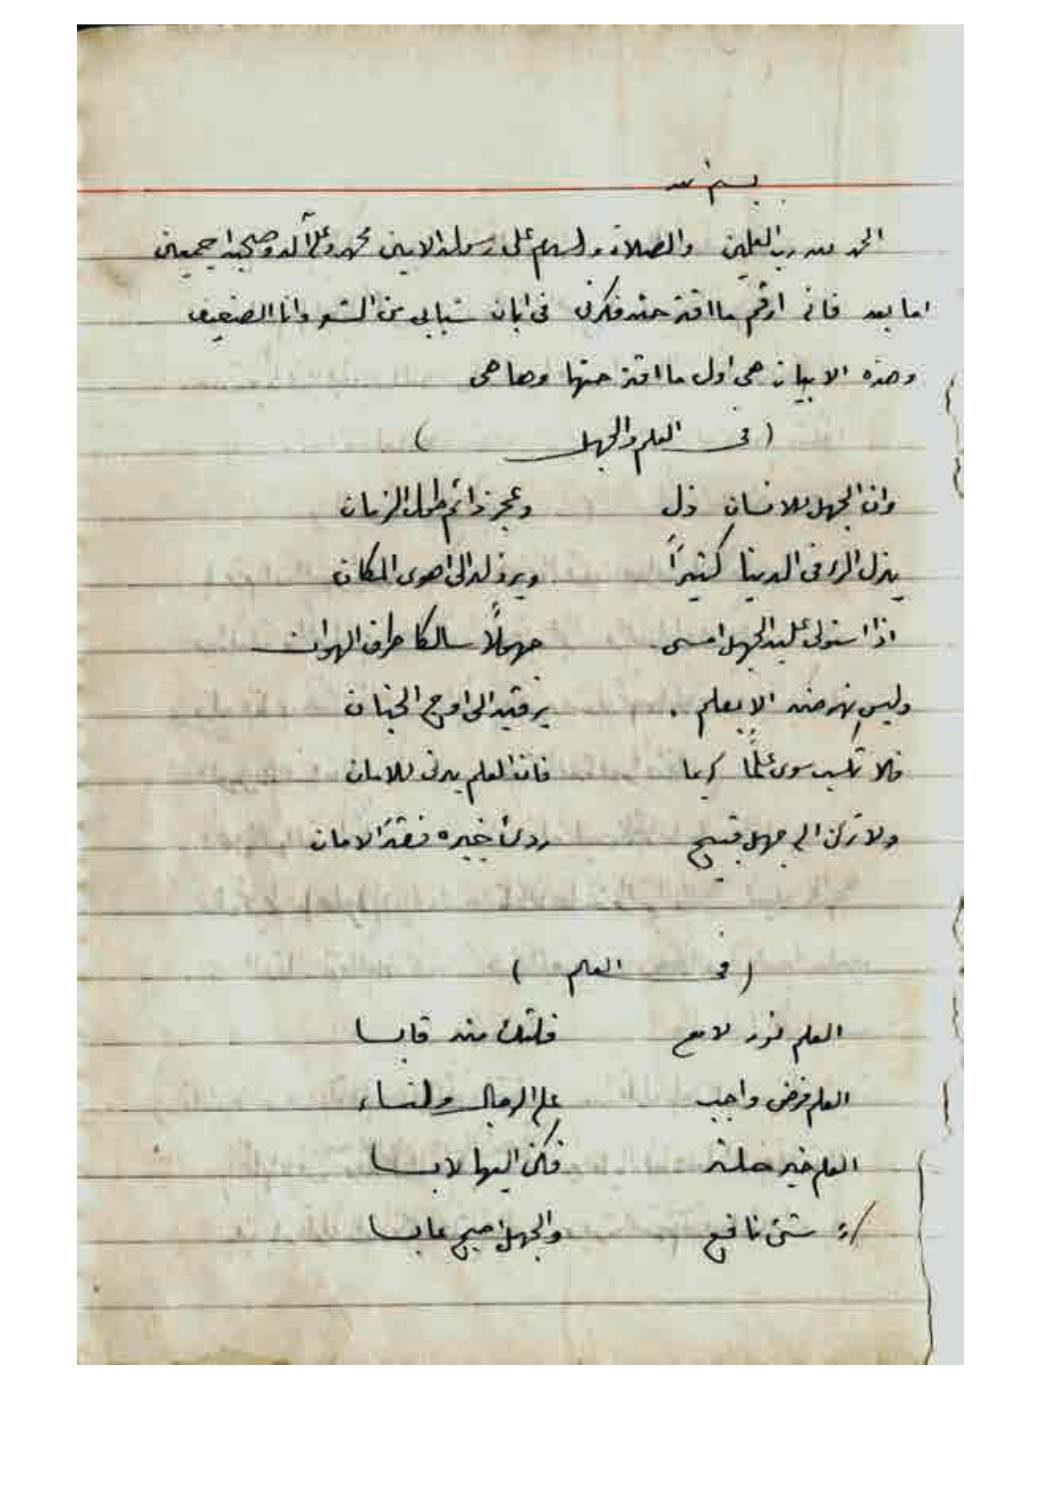 بسم الله
الحمد لله رب العلمين والصلاة والسلام على رسوله الامين محمد وعلى آله وصحبه اجمعين
اما بعد فاني ارقم ما اقترحته فكرتي في ابان شبابي من الشعر وانا الضعيف
وهذه الابيات هي اول ما اقترحتها وها هي
( في العلم والجهل )
وان الجهل للانسان ذل وعجز دائم طول الزمان
ينزل المرء في الدنيا كثيراً الى اهوى المكان
اذا استولى عليه الجهل امسى جهولاً سالكا طرق الهوان
وليس الا بعلم . يرقيه الى اوج الجنان
فلا تكسب سوى علماً كريما فان العلم يدني للامان
ولا تركن الى جهل قبيح ردئ خيره فقد الامان
( في العلم )
العلم نور لامع فلتك منه قابسا
العلم فرض واجب على الرجال والنساء
العلم خير حلة فكن اليها لابسا
شئ نافع والجهل اصبح عابسا